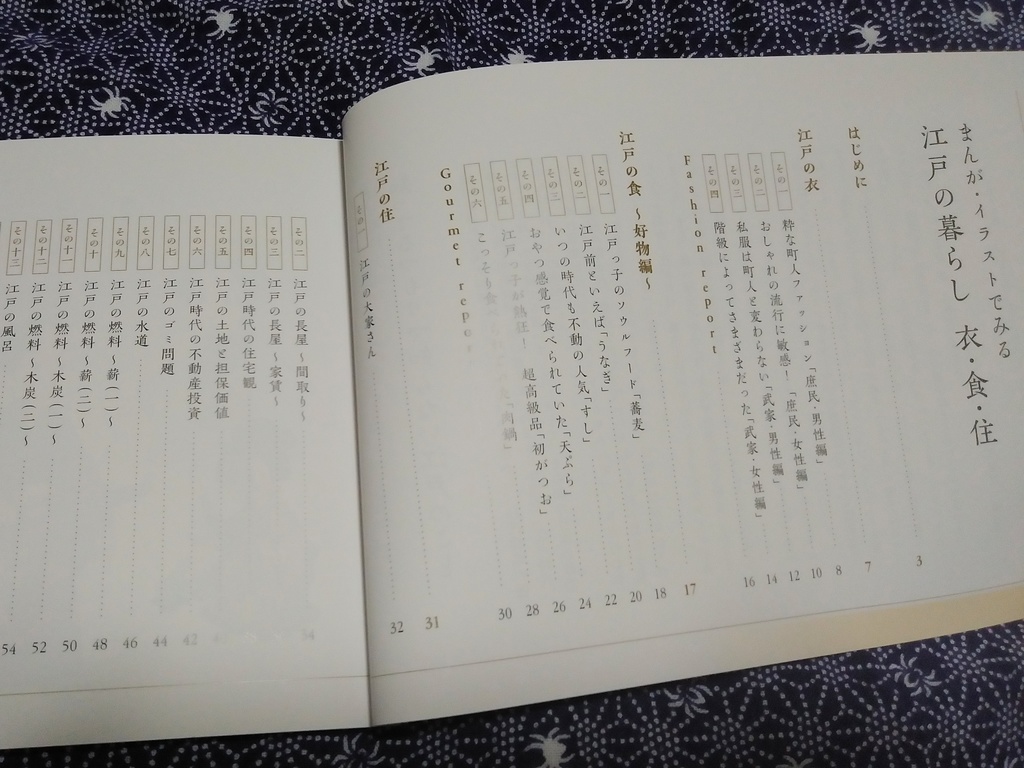 まんが・イラストでみる
江戸の暮らし 衣・食・住
はじめに 3
江戸の衣 7
その一 粋な町人ファッション「庶民・男性編」 8
その二 おしゃれの流行に敏感!「庶民・女性編」 10
その三 私服は町人と変わらない「武家・男性編」 12
その四 階級によってさまざまだった「武家・女性編」 14
Fashion report 16
江戸の食 〜好物編〜 17
その一 江戸っ子のソウルフード「蕎麦」 18
その二 江戸前といえば「うなぎ」 20
その三 いつの時代も不動の人気「すし」 22
その四 おやつ感覚で食べられていた「天ぷら」 24
その五 江戸っ子が熱狂! 超高級品「初がつお」 26
その六 こっそり食べられ 「肉鍋」 28
Gourmet repor 30
江戸の住 31
その一 江戸の大家さん 32
その二 江戸の長屋〜間取り〜 34
その三 江戸の長屋〜家賃〜
その四 江戸時代の住宅観
その五 江戸の土地と担保価値
その六 江戸時代の不動産投資 42
その七 江戸のゴミ問題 44
その八 江戸の水道 46
その九 江戸の燃料〜薪(一)〜 48
その十 江戸の燃料〜薪(二)〜 50
その十一 江戸の燃料〜木炭(一)〜 52
その十二 江戸の燃料〜木炭(二)〜 54
その十三 江戸の風呂